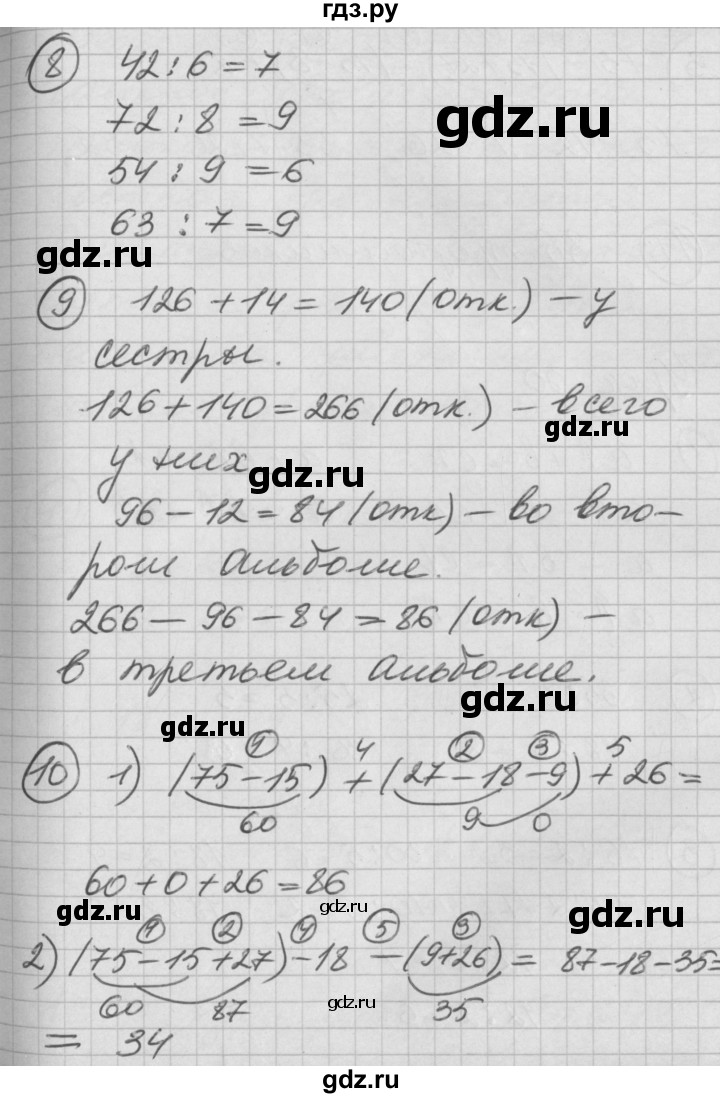 гдз.ру
8 42 : 6 = 7
72 : 8 = 9
gdz.ru
54 : 9 = 6
63 : 7 = 9
gdz.ru
9 126 + 14 = 140 (отк.) – у
сестры.
126 + 140 = 266 (отк.) – всего
gdz.ru
у них
gdz.ru
96 – 12 = 84 (отк) – во вто-
ром альбоме.
266 – 96 – 84 = 86 (отк) –
в третьем альбоме.
gdz.ru
gdz.ru
1 4 2 3 5
10 1) (75 – 15) + (27 – 18 – 9) + 26 =
60 9 0
60 + 0 + 26 = 86
gdz.ru
gdz.ru
1 2 4 5 3
2) (75 – 15 + 27) – 18 – (9 + 26) = 87 – 18 – 35 =
60 87 35
gdz.ru
gdz.ru
= 34
gdz.ru